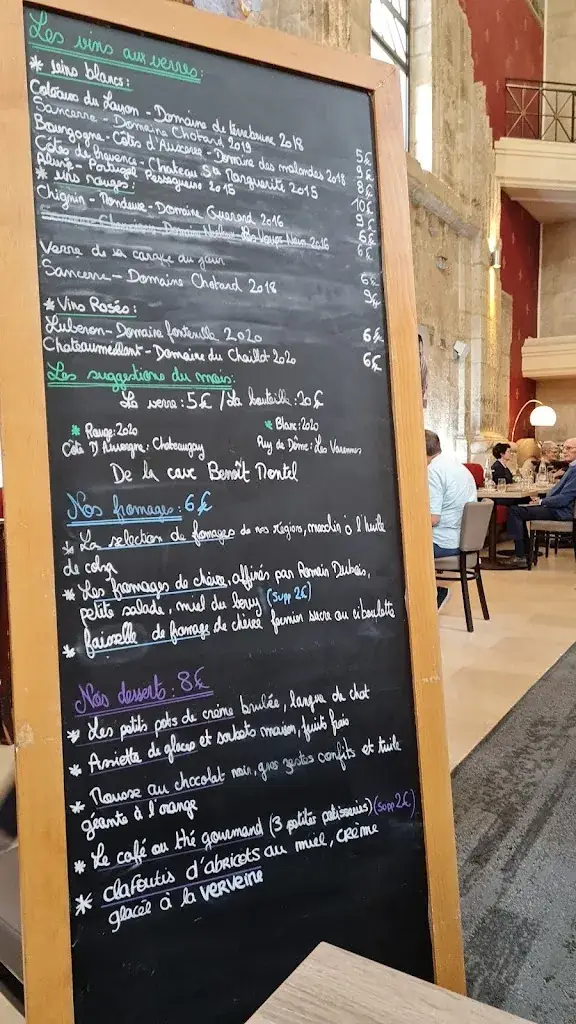 Les vins aux verres:
* vins blancs:
Coteaux du Layon - Domaine de terrebrune 2018 5€
Sancerre - Domaine Chotard 2019 9€
Bourgogne - Côtes d'Auxerre - Domaine des malandes 2018 8€
Côtes de provence - Chateau Ste Marguerite 2015 10€
- Portugal Pessegueiro 2015 9€
* vins rouges:
Chignin - Mondeuse - Domaine Quenard 2016 6€
2016 6€
Verre de sa carafe au jaun 6€
Sancerre - Domaine Chotard 2018 9€
* Vins Rosés:
Luberon - Domaine fontenille 2020 6€
Chateaumeillant - Domaine du Chaillot 2020 6€
Les suggestions du mois:
Le verre: 5€ / La bouteille: 20€
* Rouge: 2020 * Blanc: 2020
Côte D'Auvergne: Chateaugay Puy de Dôme: Les Varennes
De la cave Benoît Montel
Nos fromages: 6€
* La selection de fromages de nos régions, mesclin à l'huile
de colza
* Les fromages de chèvre, affinés par Romain Dubois,
petite salade, miel du berry (supp 2€)
* faisselle de fromage de chèvre fermier sucre ou ciboulette
Nos desserts: 8€
* Les petits pots de crème brulée, langue de chat
* Assiette de glaces et sorbets maison, fruits frais
* Mousse au chocolat noir, gros zestes confits et tuile
géante à l'orange
* Le café ou thé gourmand (3 petites patisseries) (supp 2€)
* clafoutis d'abricots au miel, crème
glacée à la verveine